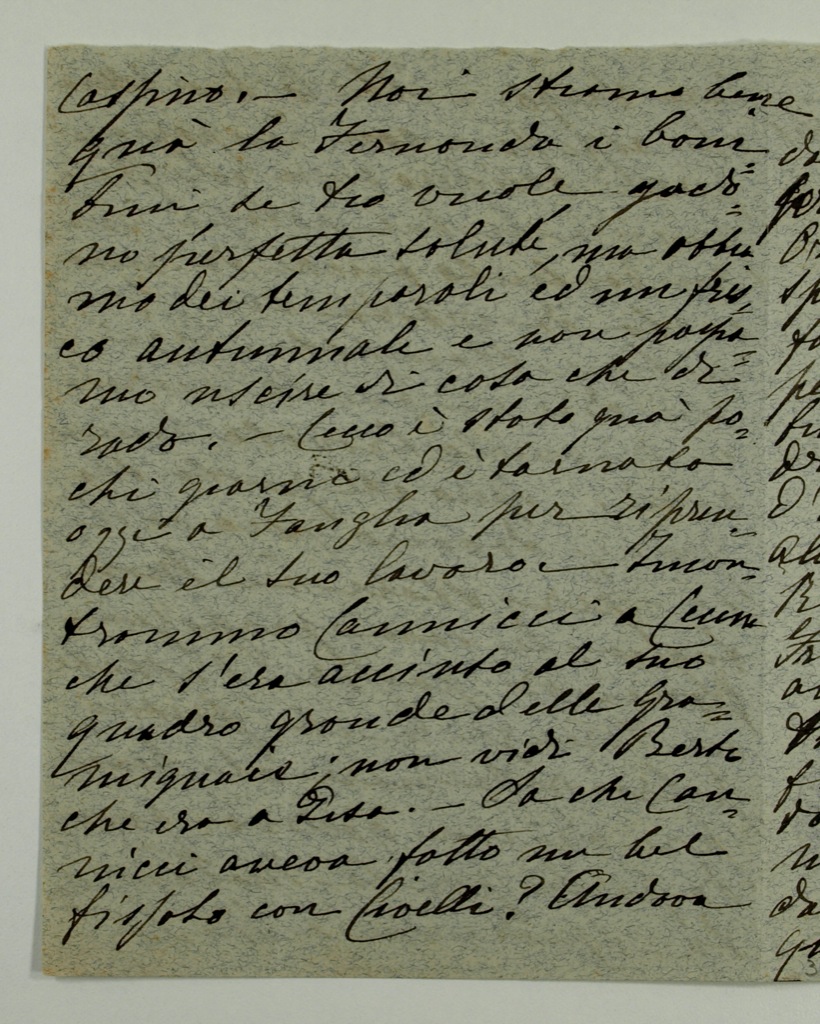 Caspino. — Noi stiamo bene
quà la Fernanda i bam=
bini se Dio vuole godo=
no perfetta salute, ma abbia
mo dei temporali ed un fres
co autunnale e non possia=
mo uscire di casa che di
rado. — Cecco è stato quà po=
chi giorni ed è tornato
oggi a Fauglia per ripren=
dere il suo lavoro. — Incon=
trammo Cannicci a Cecina
che s'era accinto al suo
quadro grande delle Gra=
mignaie; non vidi Berto
che era a Pisa. — Sa che Can=
nicci aveva fatto un bel
fissato con Civelli? Andava